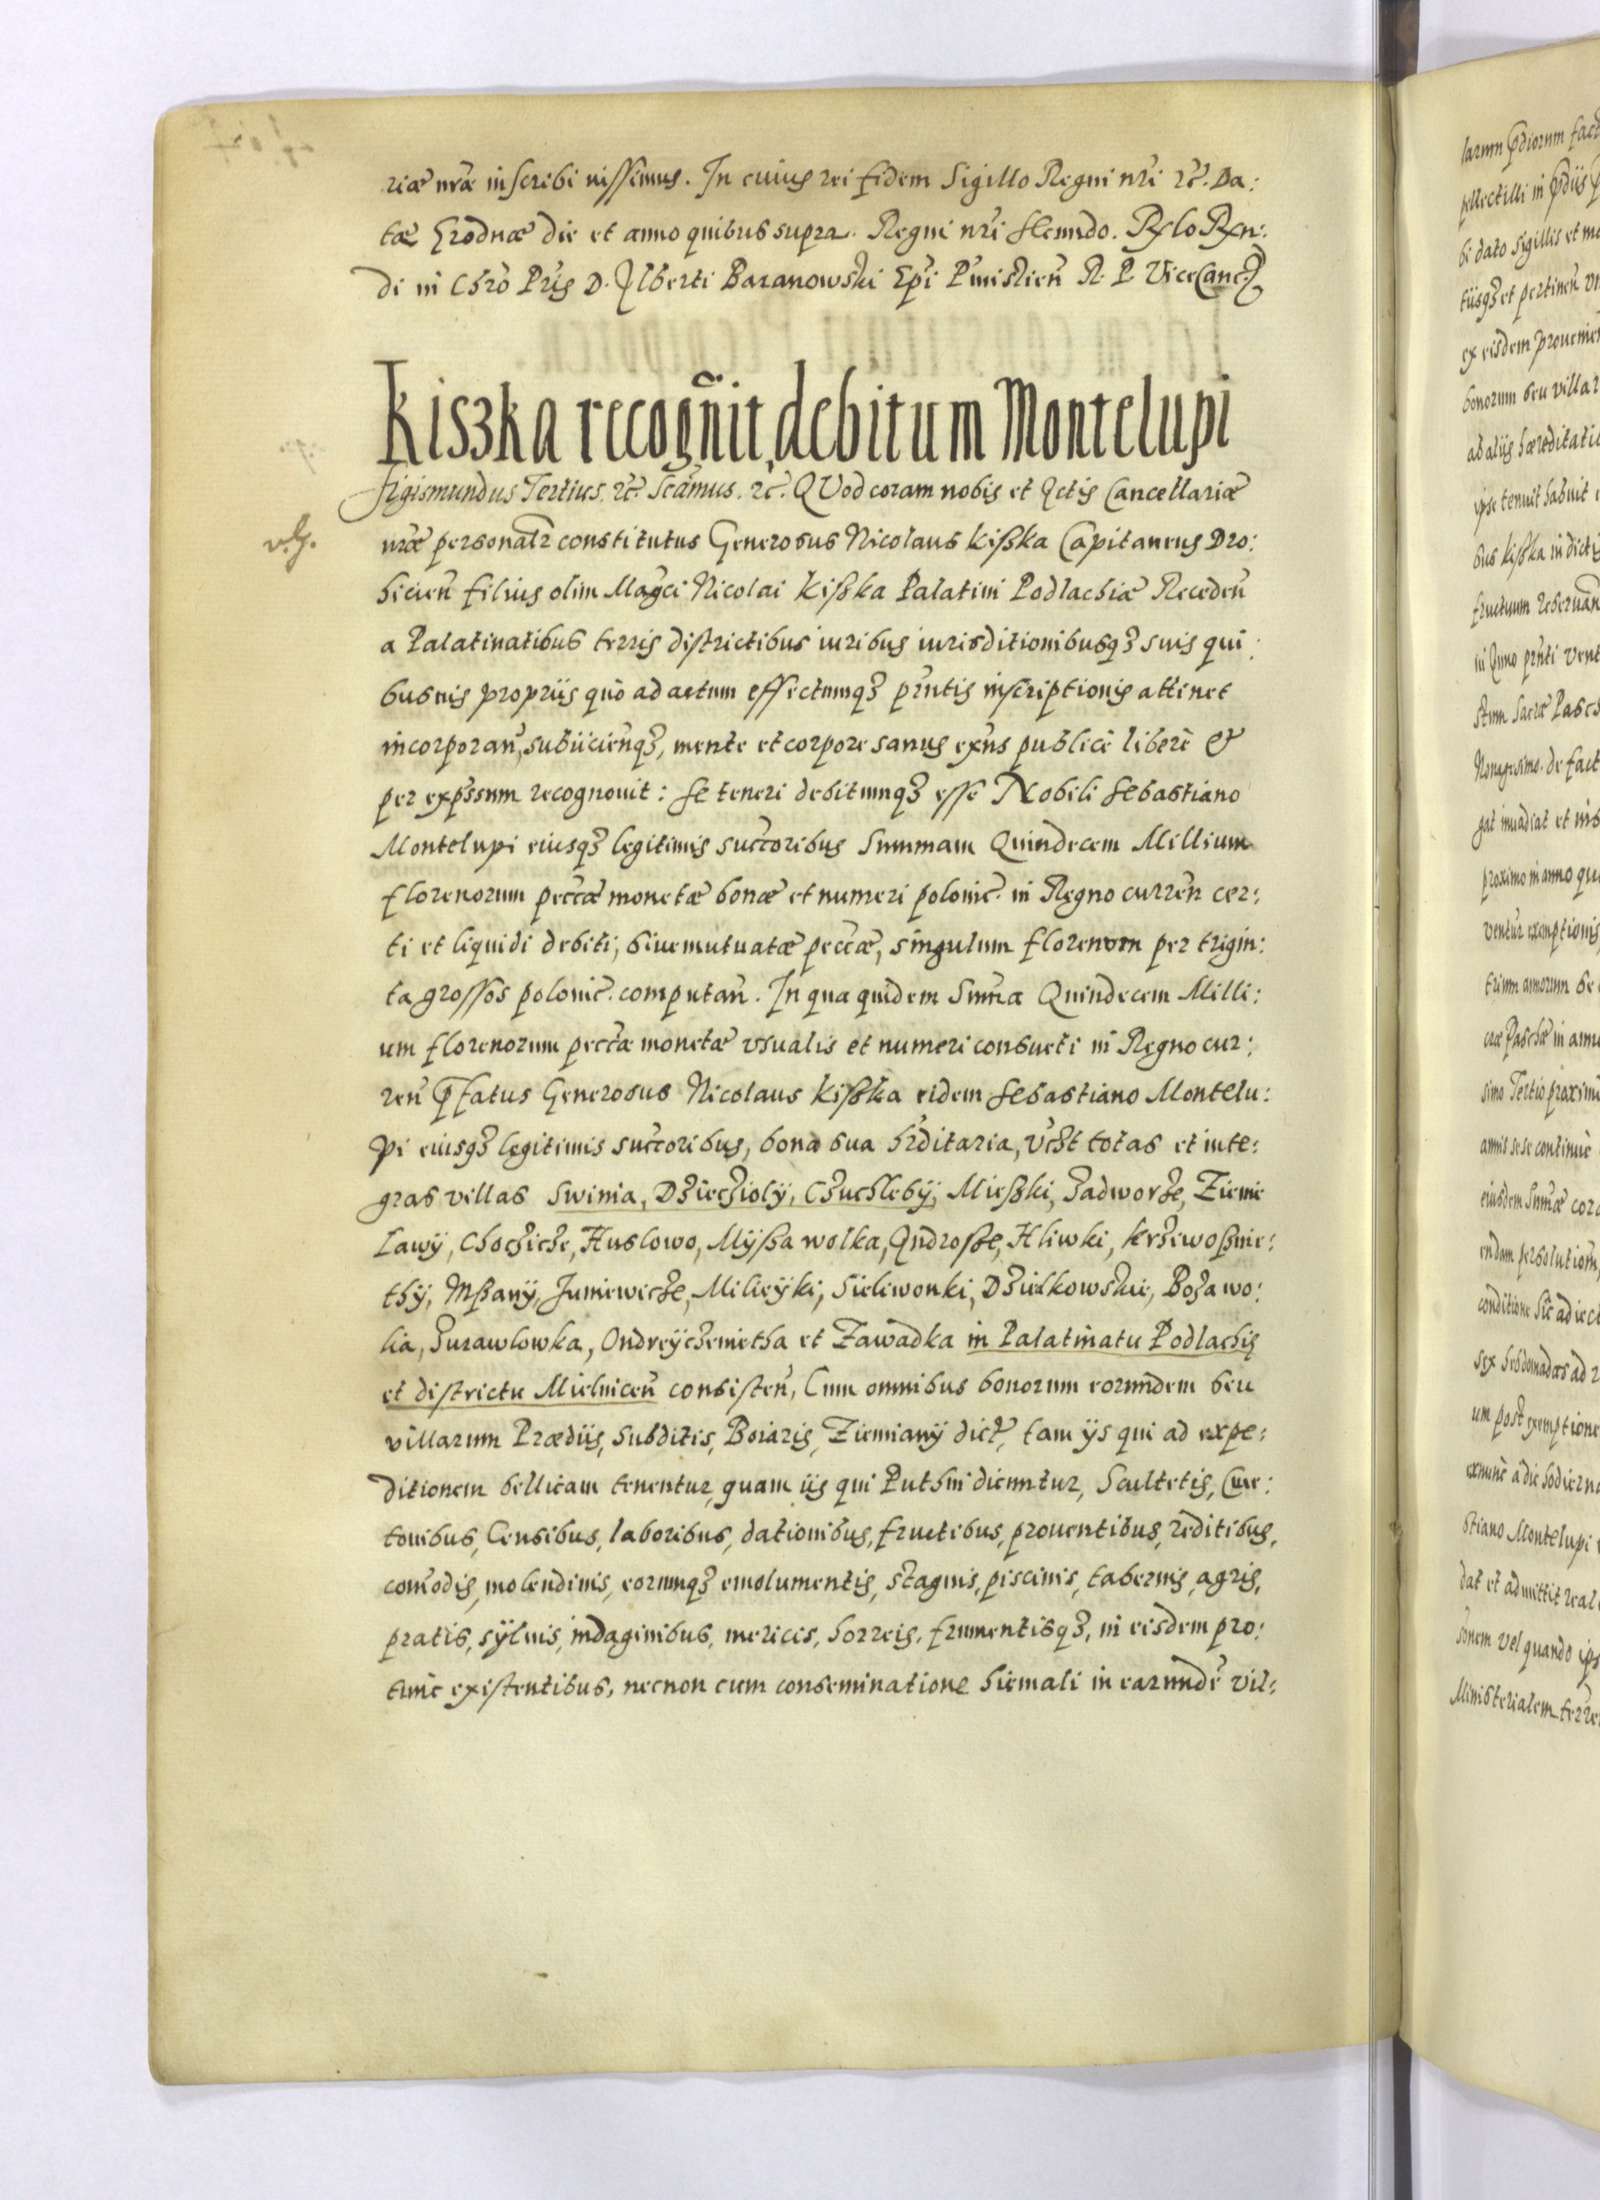 riæ nræ inscribi iussimus. In cuius rei fidem Sigillo Regni nri etc. Da:
tæ Grodnæ die et anno quibus supra. Regni nri secundo. Rslo Rxn:
di in Chro Pris D. Alberti Baranowski Epi Pmislien R. P. ViceCanc
Kiszka recognit debitum Montelupi
Sigismundus Tertius. etc. Scamus. etc. QVod coram nobis et Actis Cancellariæ
nræ personalr constitutus Generosus Nicolaus Kißka Capitaneus Dro:
hicien filius olim Magci Nicolai Kißka Palatini Podlachiæ Receden
a Palatinatibus terris districtibus iuribus iurisditionibusq3 suis qui
busuis propriis quo ad actum effectumq3 prntis inscriptionis attinet
incorporan, subiicienq3, mente et corpore sanus exns publice libere &
per expssum recognouit: se teneri debitumq3 esse Nobili Sebastiano
Montelupi eiusq3 legitimis succoribus Summam Quindecem Millium
florenorum peccæ monetæ bonæ et numeri polonic. in Regno curren cer:
ti et liquidi debiti, siue mutuatæ peccæ, singulum florenum per trigin:
ta grossos polonic. computan. In qua quidem Suma Quindecem Milli:
um florenorum peccæ monetæ vsualis et numeri consueti in Regno cur:
ren pfatus Generosus Nicolaus Kißka eidem Sebastiano Montelu:
pi eiusq3 legitimis succoribus, bona sua hrditaria, vcht totas et inte:
gras villas Swinia, Dzięcziolÿ, Czuchlebÿ, Mießki, Zadworze, Ziemie
Lawÿ, Chocziche, Huslowo, Mÿßa wolka, Androsße, Hliwki, Krzewoßnie:
thÿ, Mßanÿ, Juniewicze, Milieÿki, Sieliwonki, Dzielkowskie, Boza wo:
lia, Zurawlowka, Ondreÿczemietha et Zawadka in Palatinatu Podlachię
et districtu Mielnicen consisten, Cum omnibus bonorum eorundem seu
villarum Prædiis, Subditis, Boiaris, Ziemianÿ dict, tam ÿs qui ad expe:
ditionem bellicam tenentur, quam iis qui Puthni dicuntur, Scultetis, Cme:
tonibus, Censibus, laboribus, dationibus, fructibus, prouentibus, reditibus,
comodis, molendinis, eorumq3 emolumentis, stagnis, piscinis, tabernis, agris,
pratis, sÿluis, indaginibus, mericis, horreis, frumentisq3, in eisdem pro:
tunc existentibus, necnon cum conseminatione hiemali in earunde vil:
larum pdiorum fact
bi dato sigillis et mo
ex eisdem prouenien
bonorum seu villar
ipse tenuit habuit
sus Kißka in dictis
fructuum reseruan
in Anno prnti vent
Nonagesimo. de fact
proximo in anno qu
ventur exemptionis
trium annorum se
simo Tertio proxim
annis sese continue
eiusdem Sumæ cora
endam persolutiom,
conditione sic adiect
sex hebdomadas ad
um post exemptione
exnunc a die hodierna
stiano Montelupi
dat et admittit real
Ministerialem terre